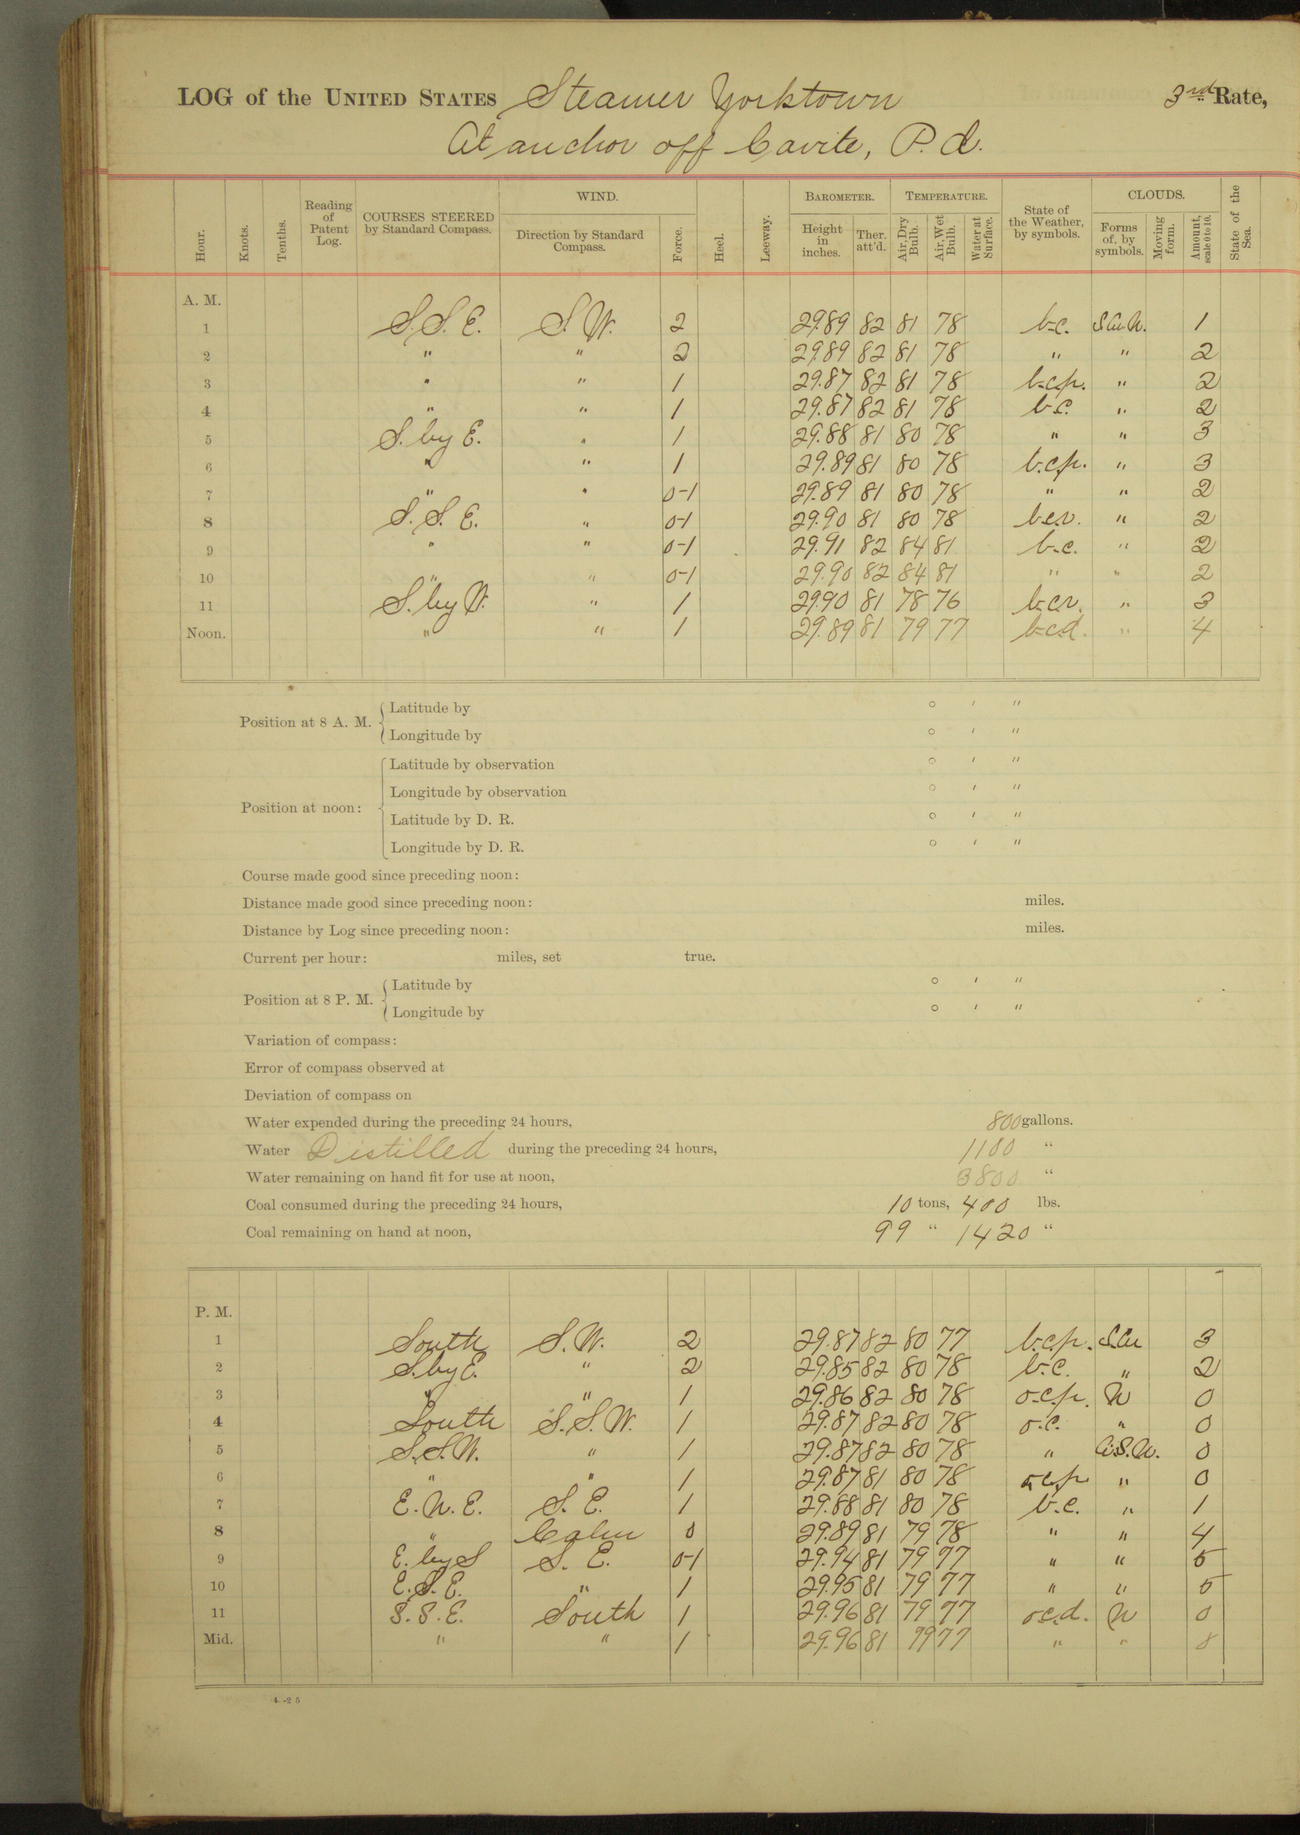 LOG of the UNITED STATES Steamer Yorktown 3rd Rate,
At anchor off Cavite, P. I.
Hour. Knots. Tenths. Reading of Patent Log. COURSES STEERED by Standard Compass. WIND. Direction by Standard Compass. Force. Heel. Leeway. BAROMETER. Height in inches. Ther. att'd. TEMPERATURE. Air, Dry Bulb. Air, Wet Bulb. Water at Surface. State of the Weather, by symbols. CLOUDS. Forms of, by symbols. Moving form. Amount, scale 0 to 10. State of the Sea.
A. M.
1 S.S.E. S.W. 2 29.89 82 81 78 b.c. S.Cu.N. 1
2 " " 2 29.89 82 81 78 " " 2
3 " " 1 29.87 82 81 78 b.c.p. " 2
4 " " 1 29.87 82 81 78 b.c. " 2
5 S. by E. " 1 29.88 81 80 78 " " 3
6 " " 1 29.89 81 80 78 b.c.p. " 3
7 " " 0-1 29.89 81 80 78 " " 2
8 S.S.E. " 0-1 29.90 81 80 78 b.c.r. " 2
9 " " 0-1 29.91 82 84 81 b.c. " 2
10 " " 0-1 29.90 82 84 81 " " 2
11 S. by W. " 1 29.90 81 78 76 b.c.r. " 3
Noon. " " 1 29.89 81 79 77 b.c.d. " 4
Position at 8 A. M. Latitude by ° ′ ″
Longitude by ° ′ ″
Position at noon: Latitude by observation ° ′ ″
Longitude by observation ° ′ ″
Latitude by D. R. ° ′ ″
Longitude by D. R. ° ′ ″
Course made good since preceding noon:
Distance made good since preceding noon: miles.
Distance by Log since preceding noon: miles.
Current per hour: miles, set true.
Position at 8 P. M. Latitude by ° ′ ″
Longitude by ° ′ ″
Variation of compass:
Error of compass observed at
Deviation of compass on
Water expended during the preceding 24 hours, 800 gallons.
Water Distilled during the preceding 24 hours, 1100 "
Water remaining on hand fit for use at noon, 3800 "
Coal consumed during the preceding 24 hours, 10 tons, 400 lbs.
Coal remaining on hand at noon, 99 " 1420 "
P. M.
1 South S.W. 2 29.87 82 80 77 b.c.p. S.Cu 3
2 S. by E. " 2 29.85 82 80 78 b.c. " 2
3 " " 1 29.86 82 80 78 o.c.p. N 0
4 South S.S.W. 1 29.87 82 80 78 o.c. " 0
5 S.S.W. " 1 29.87 82 80 78 " 0
6 " " 1 29.87 81 80 78 o.c.p. " 0
7 E.N.E. S.E. 1 29.88 81 80 78 b.c. " 1
8 " Calm 0 29.89 81 79 78 " " 4
9 E. by S S.E. 0-1 29.94 81 79 77 " " 5
10 E.S.E. " 1 29.95 81 79 77 " " 5
11 S.S.E. South 1 29.96 81 79 77 o.c.d. N 0
Mid. " " 1 29.96 81 79 77 " "
4.-2 5